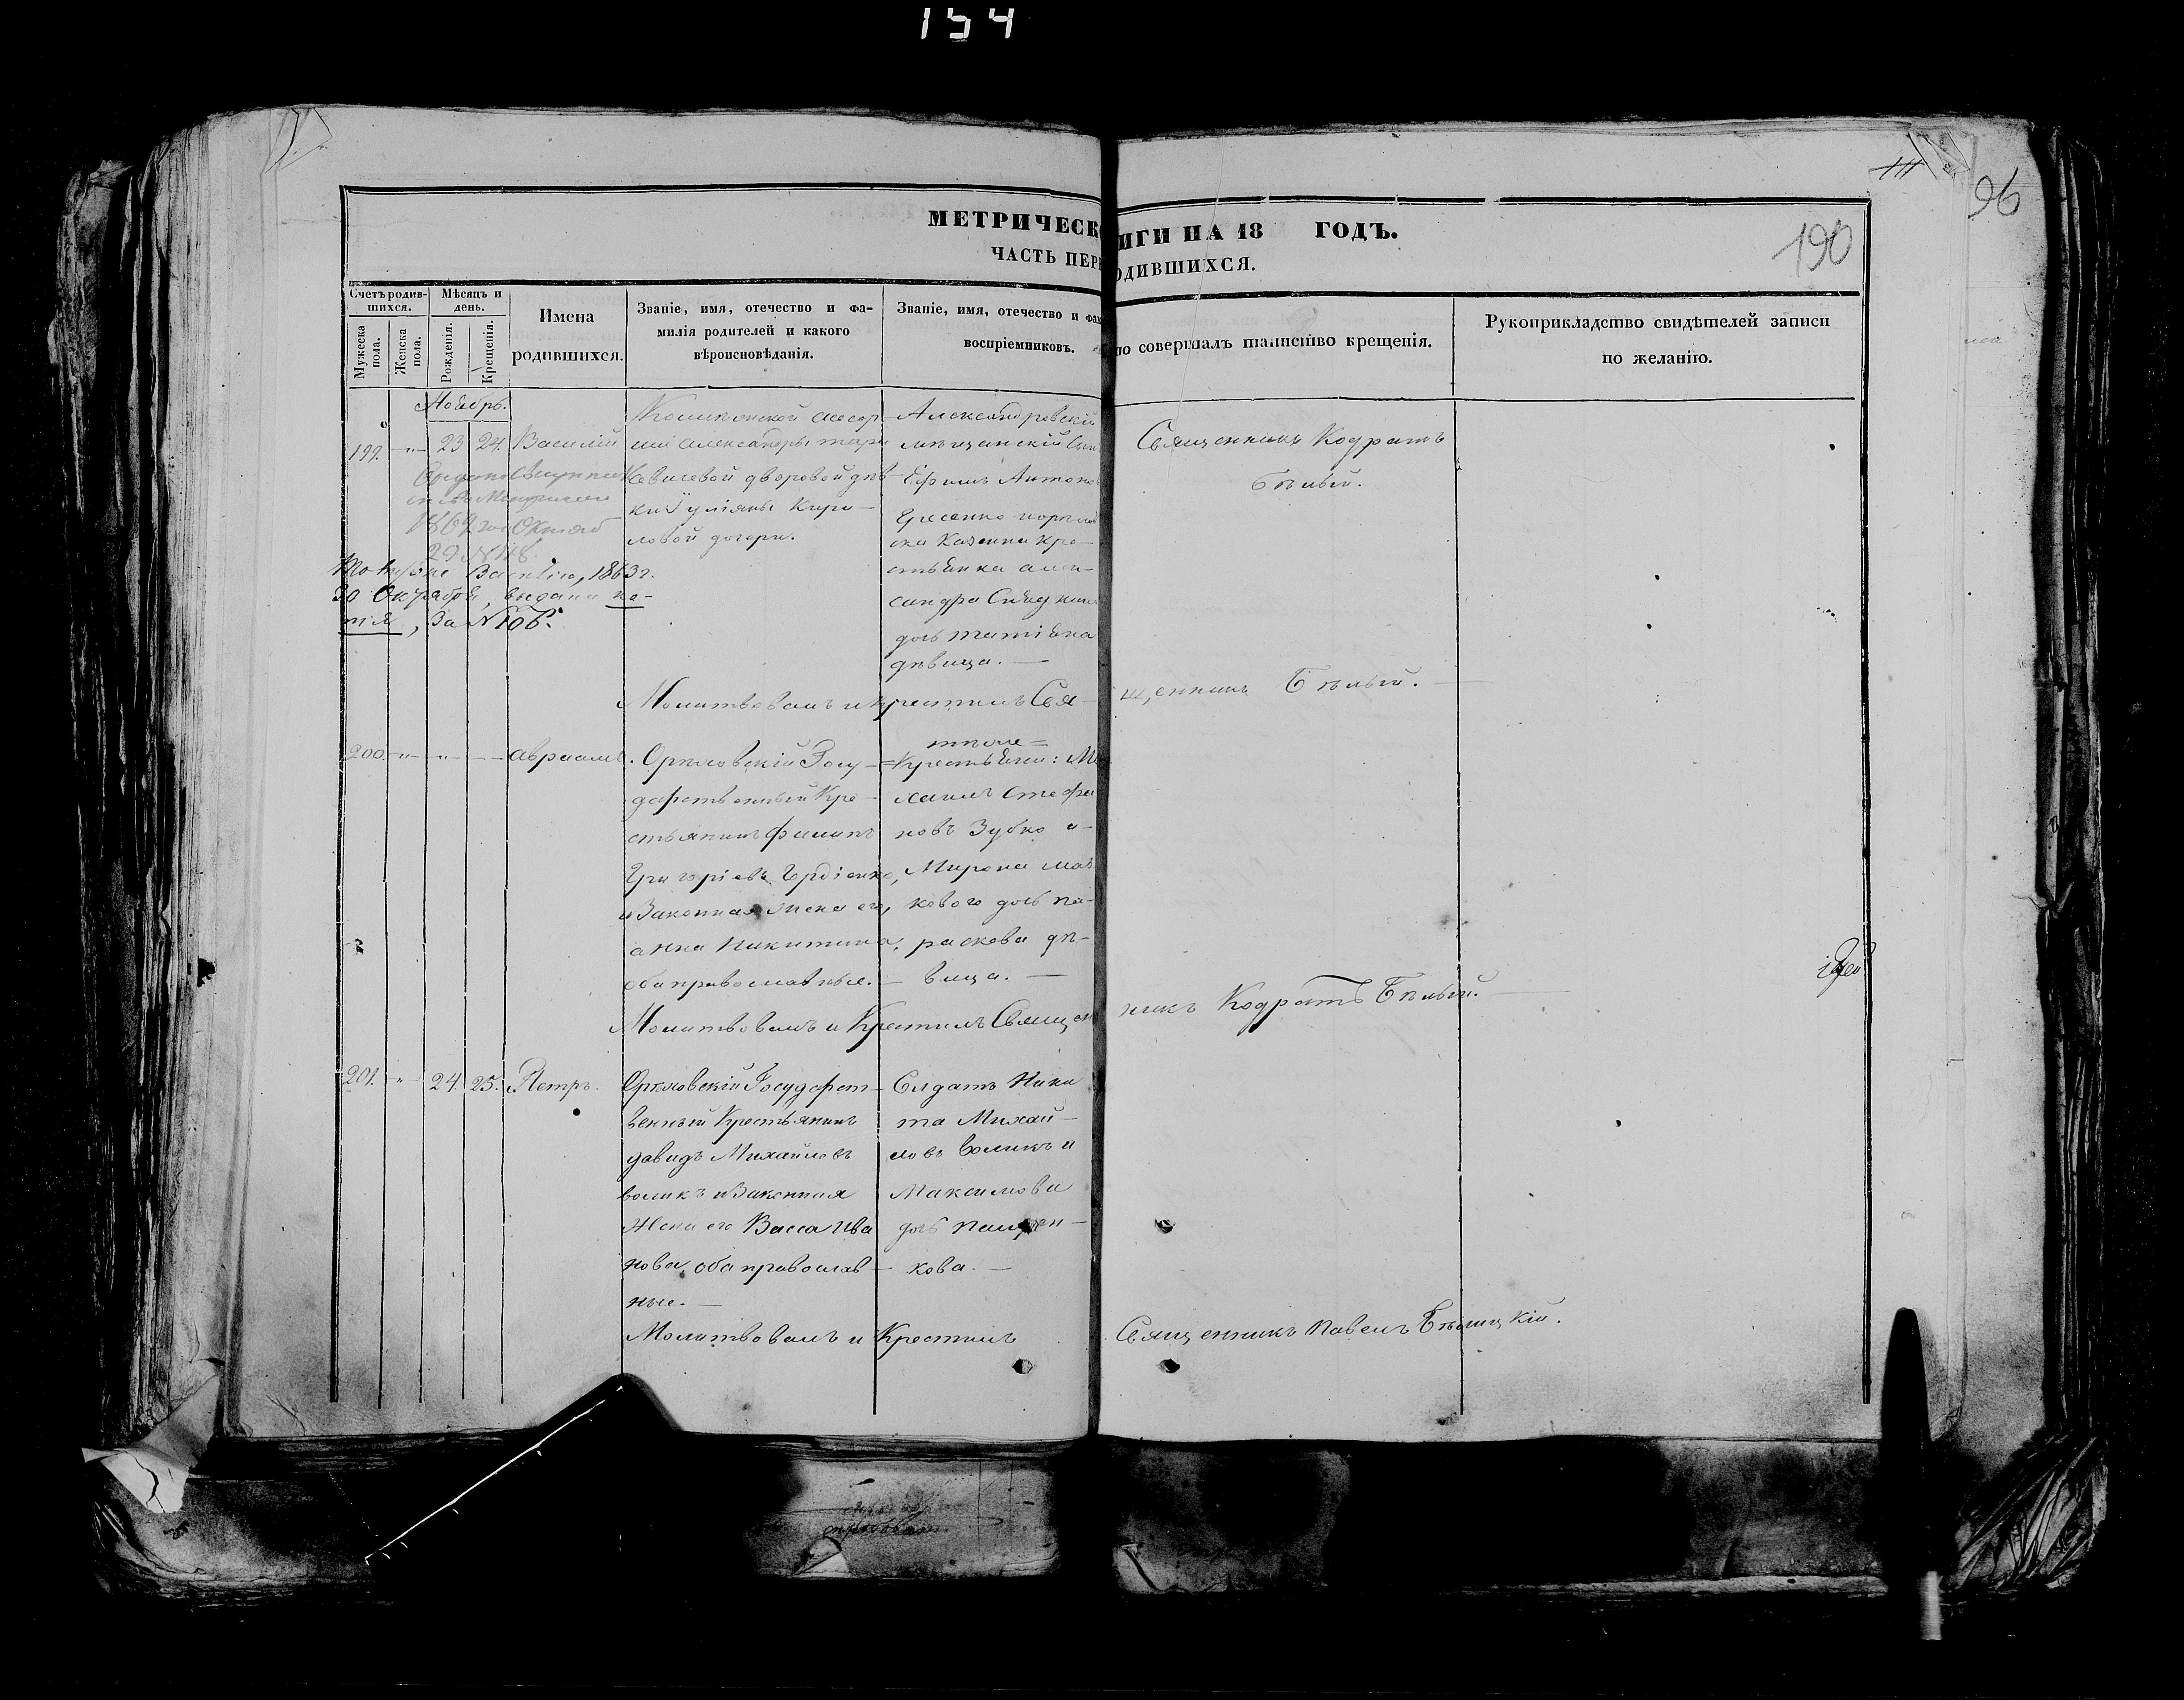 154
96
190
МЕТРИЧЕСК ИГИ НА 18 ГОДЪ.
ЧАСТЬ ПЕР ОДИВШИХСЯ.
Счетъ родив-
шихся.
Мужеска пола.
Женска пола.
Мѣсяцъ и
день.
Рожденія.
Крещенія.
Имена
родившихся.
Званіе, имя, отечество и фа-
милія родителей и какого
вѣроисновѣданія.
Званіе, имя, отечество и фа
воспріемниковъ.
то совершалъ таинство крещенія.
Рукоприкладство свидѣтелей записи
по желанію.
Ноябрь.
199. 23 24. Василій
Александры
свичевой дворовой дѣв-
ки Іуліяны Кири-
ловой дочери.
29 № 118.
Василію, 1863 г.
30 Октября, выдана ко-
пія, за № 106.
Александровскій
мѣщанскій Сын
Ефимъ Антоно
Казенна кре-
стьянка алек-
сандра
дочь татіяна
дѣвица.
Священникъ Кодратъ
Бѣлый.
Молитвовалъ и крестилъ Свя-
щенникъ Бѣлый.
200. авраамъ.
Орѣховскій Госу-
дарственный Кре-
стьянинъ филипъ
Григоріевъ Гордіенко,
и Законная жена его,
анна Никитина,
оба православные.
тыеже=
Крестьяни: Ми
хаилъ Стефа
новъ Зубко и
Мирона мал
кового дочь па-
раскева дѣ-
вица.
Молитвовалъ и Крестилъ Священ
никъ Кодратъ Бѣлый.
201. 24. 25. Петръ.
Орѣховскій Государст-
венный Крестьянинъ
давидъ Михайловъ
воликъ и Законная
Жена его Васса Ива
нова, оба православ-
ные.
Солдатъ Ники
та Михай-
ловъ Воликъ и
Максимова
дочь
кова.
Молитвовалъ и Крестилъ
Священникъ Павелъ Бѣлицкій.